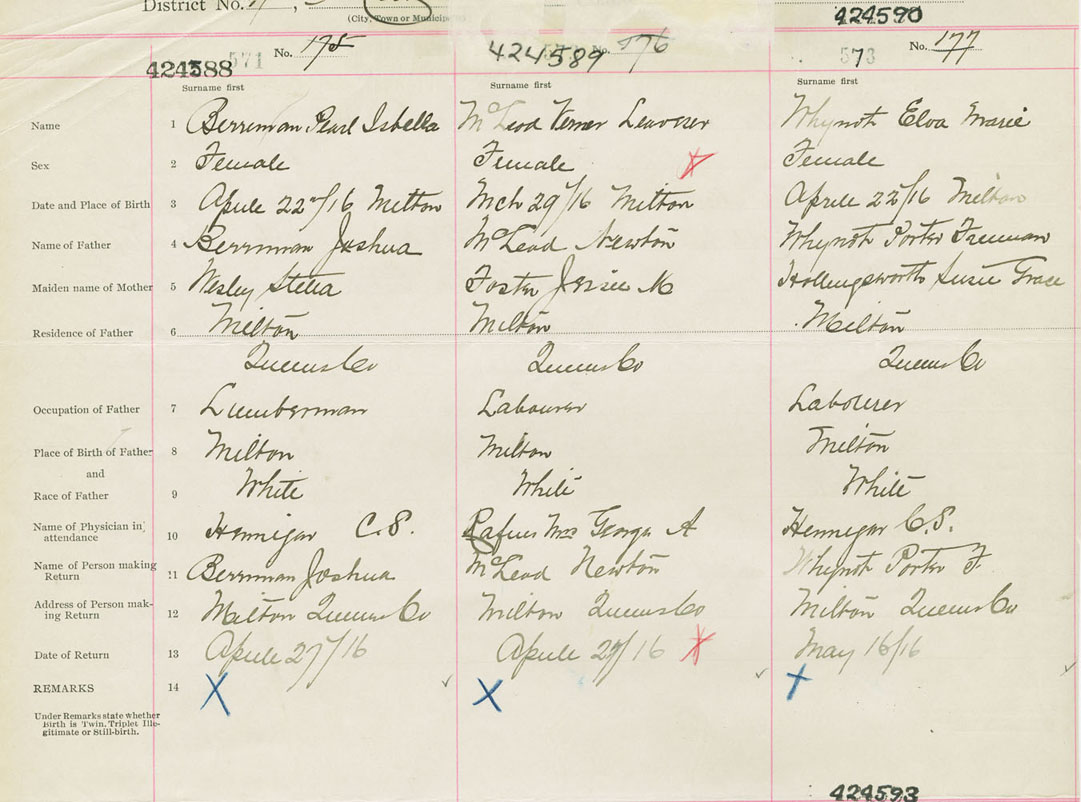 District No.
(City, Town or Municip
424590
424588 571 No. 175
424589 No. 176
573 No. 177
Surname first Surname first Surname first
Name 1 Berriman Pearl Isbella McLeod Verner Whynot Elva Marie
Sex 2 Female Female Female
Date and Place of Birth 3 Aprile 22nd/16 Milton Mch 29/16 Milton Aprile 22/16 Milton
Name of Father 4 Berriman Joshua McLead Newton Whynot Porter Freeman
Maiden name of Mother 5 Wesley Stella Foster Jessie M Hollingsworth Susie Grace
Residence of Father 6 Milton Milton Milton
Queens Co Queens Co Queens Co
Occupation of Father 7 Lumberman Labourer Labourer
Place of Birth of Father 8 Milton Milton Milton
and
Race of Father 9 White White White
Name of Physician in attendance 10 Hennigar C.S. Rafuse Mrs George A Hennigar C.S.
Name of Person making Return 11 Berriman Joshua McLead Newton Whynot Porter F
Address of Person making Return 12 Milton Queens Co Milton Queens Co Milton Queens Co
Date of Return 13 Aprile 27/16 Aprile 27/16 May 16/16
REMARKS 14 X X
Under Remarks state whether
Birth is Twin. Triplet Ille-
gitimate or Still-birth.
424593